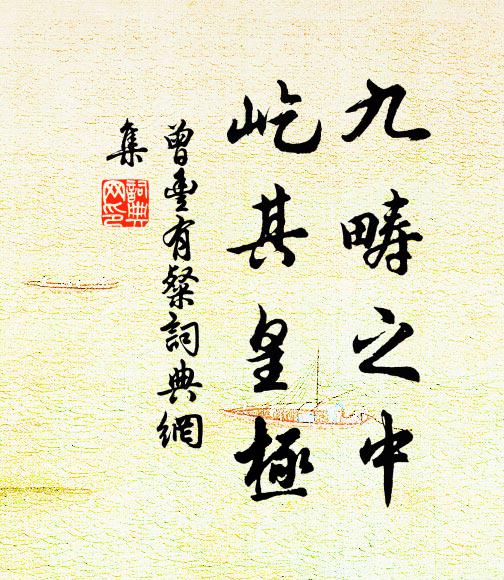 九畴之中
屹其皇極
曾豊有粲詞典網
集
詞典网印